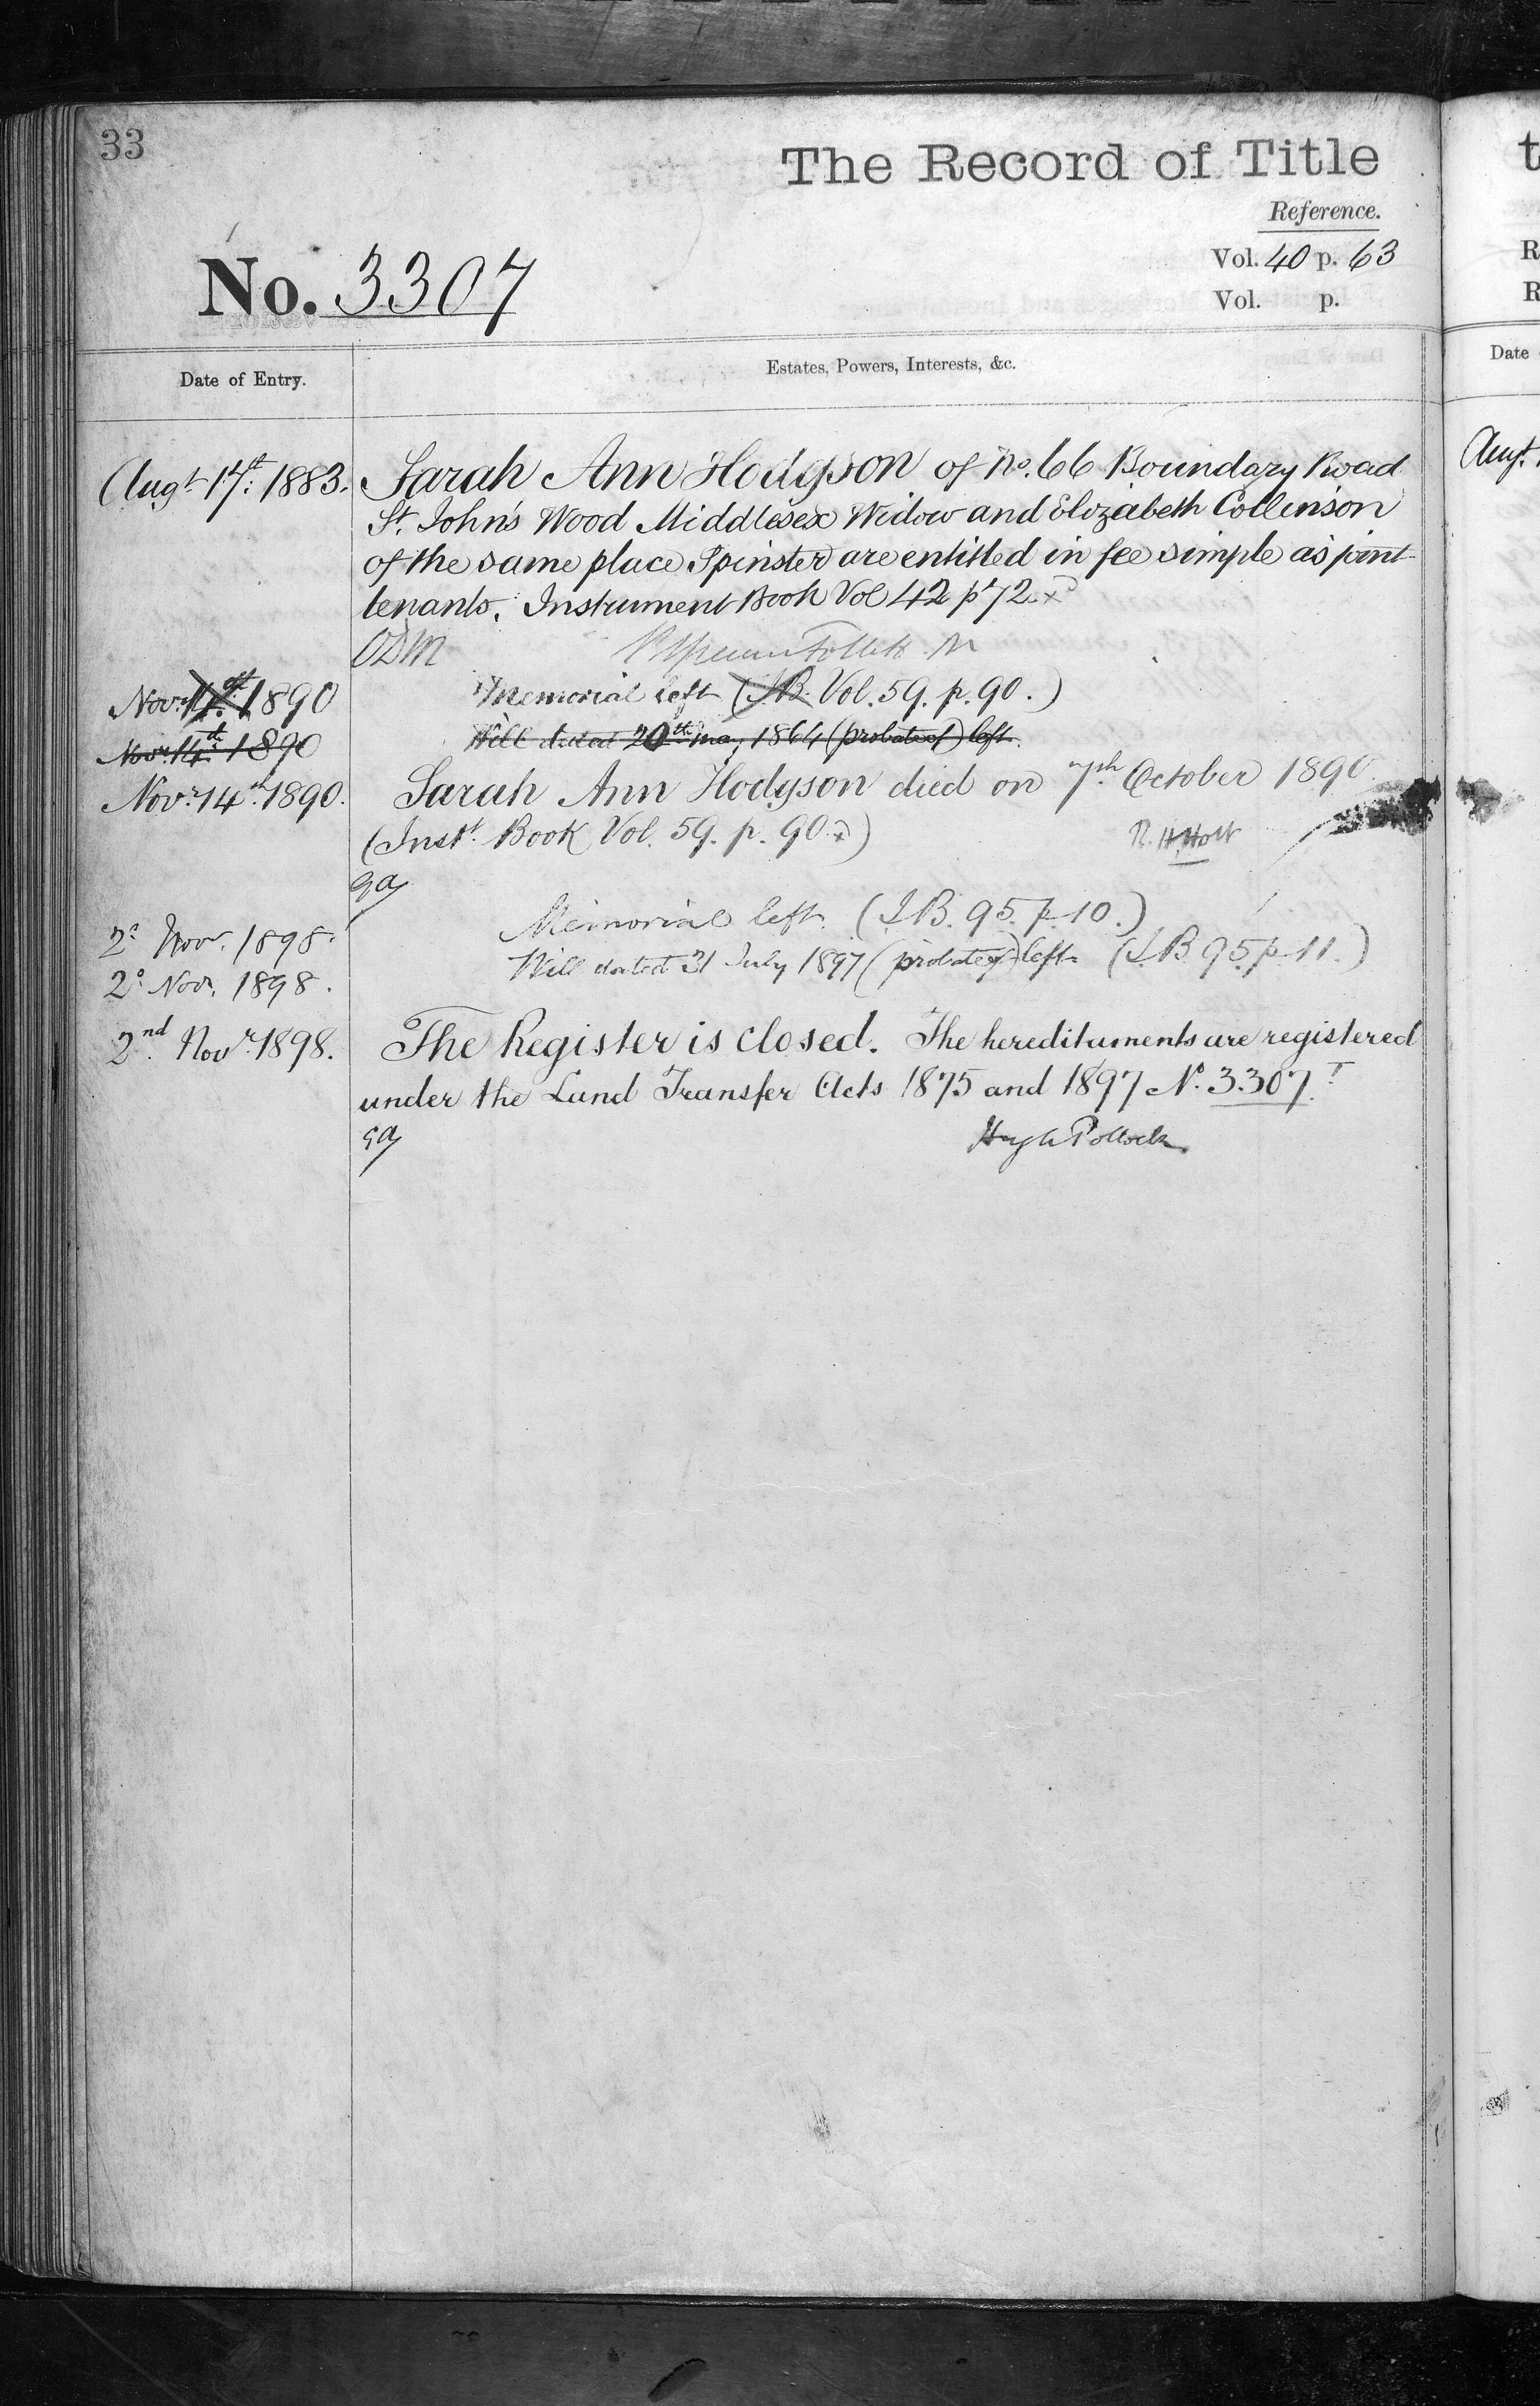 33
The Record of Title
Reference.
Vol. 40 p. 63
No. 3307
Vol. p.
Date of Entry.
Estates, Powers, Interests, &c.
Augt. 17th. 1883. Sarah Ann Hodgson of No. 66 Boundary Road
St. John's Wood Middlesex Widow and Elizabeth Collinson
of the same place Spinster are entitled in fee simple as joint
tenants. Instrument Book Vol 42 p 72
ODM
Novr. 1890 Memorial left (I.B. Vol. 59. p. 90.)
Novr. 14th 1890 Will dated 20th May 1864 (probate of) left.
Novr. 14th. 1890. Sarah Ann Hodgson died on 7th October 1890
(Instt. Book Vol. 59. p. 90.) R. H. Holt
2d Nov. 1898. Memorial left. (I.B. 95. p. 10.)
2d Nov. 1898. Will dated 31 July 1897 (probate of) left (I.B 95. p. 11.)
2nd. Novr. 1898. The Register is closed. The hereditaments are registered
under the Land Transfer Acts 1875 and 1897 No. 3307 T
Hugh Pollock
t
R
R
Date
Augt.